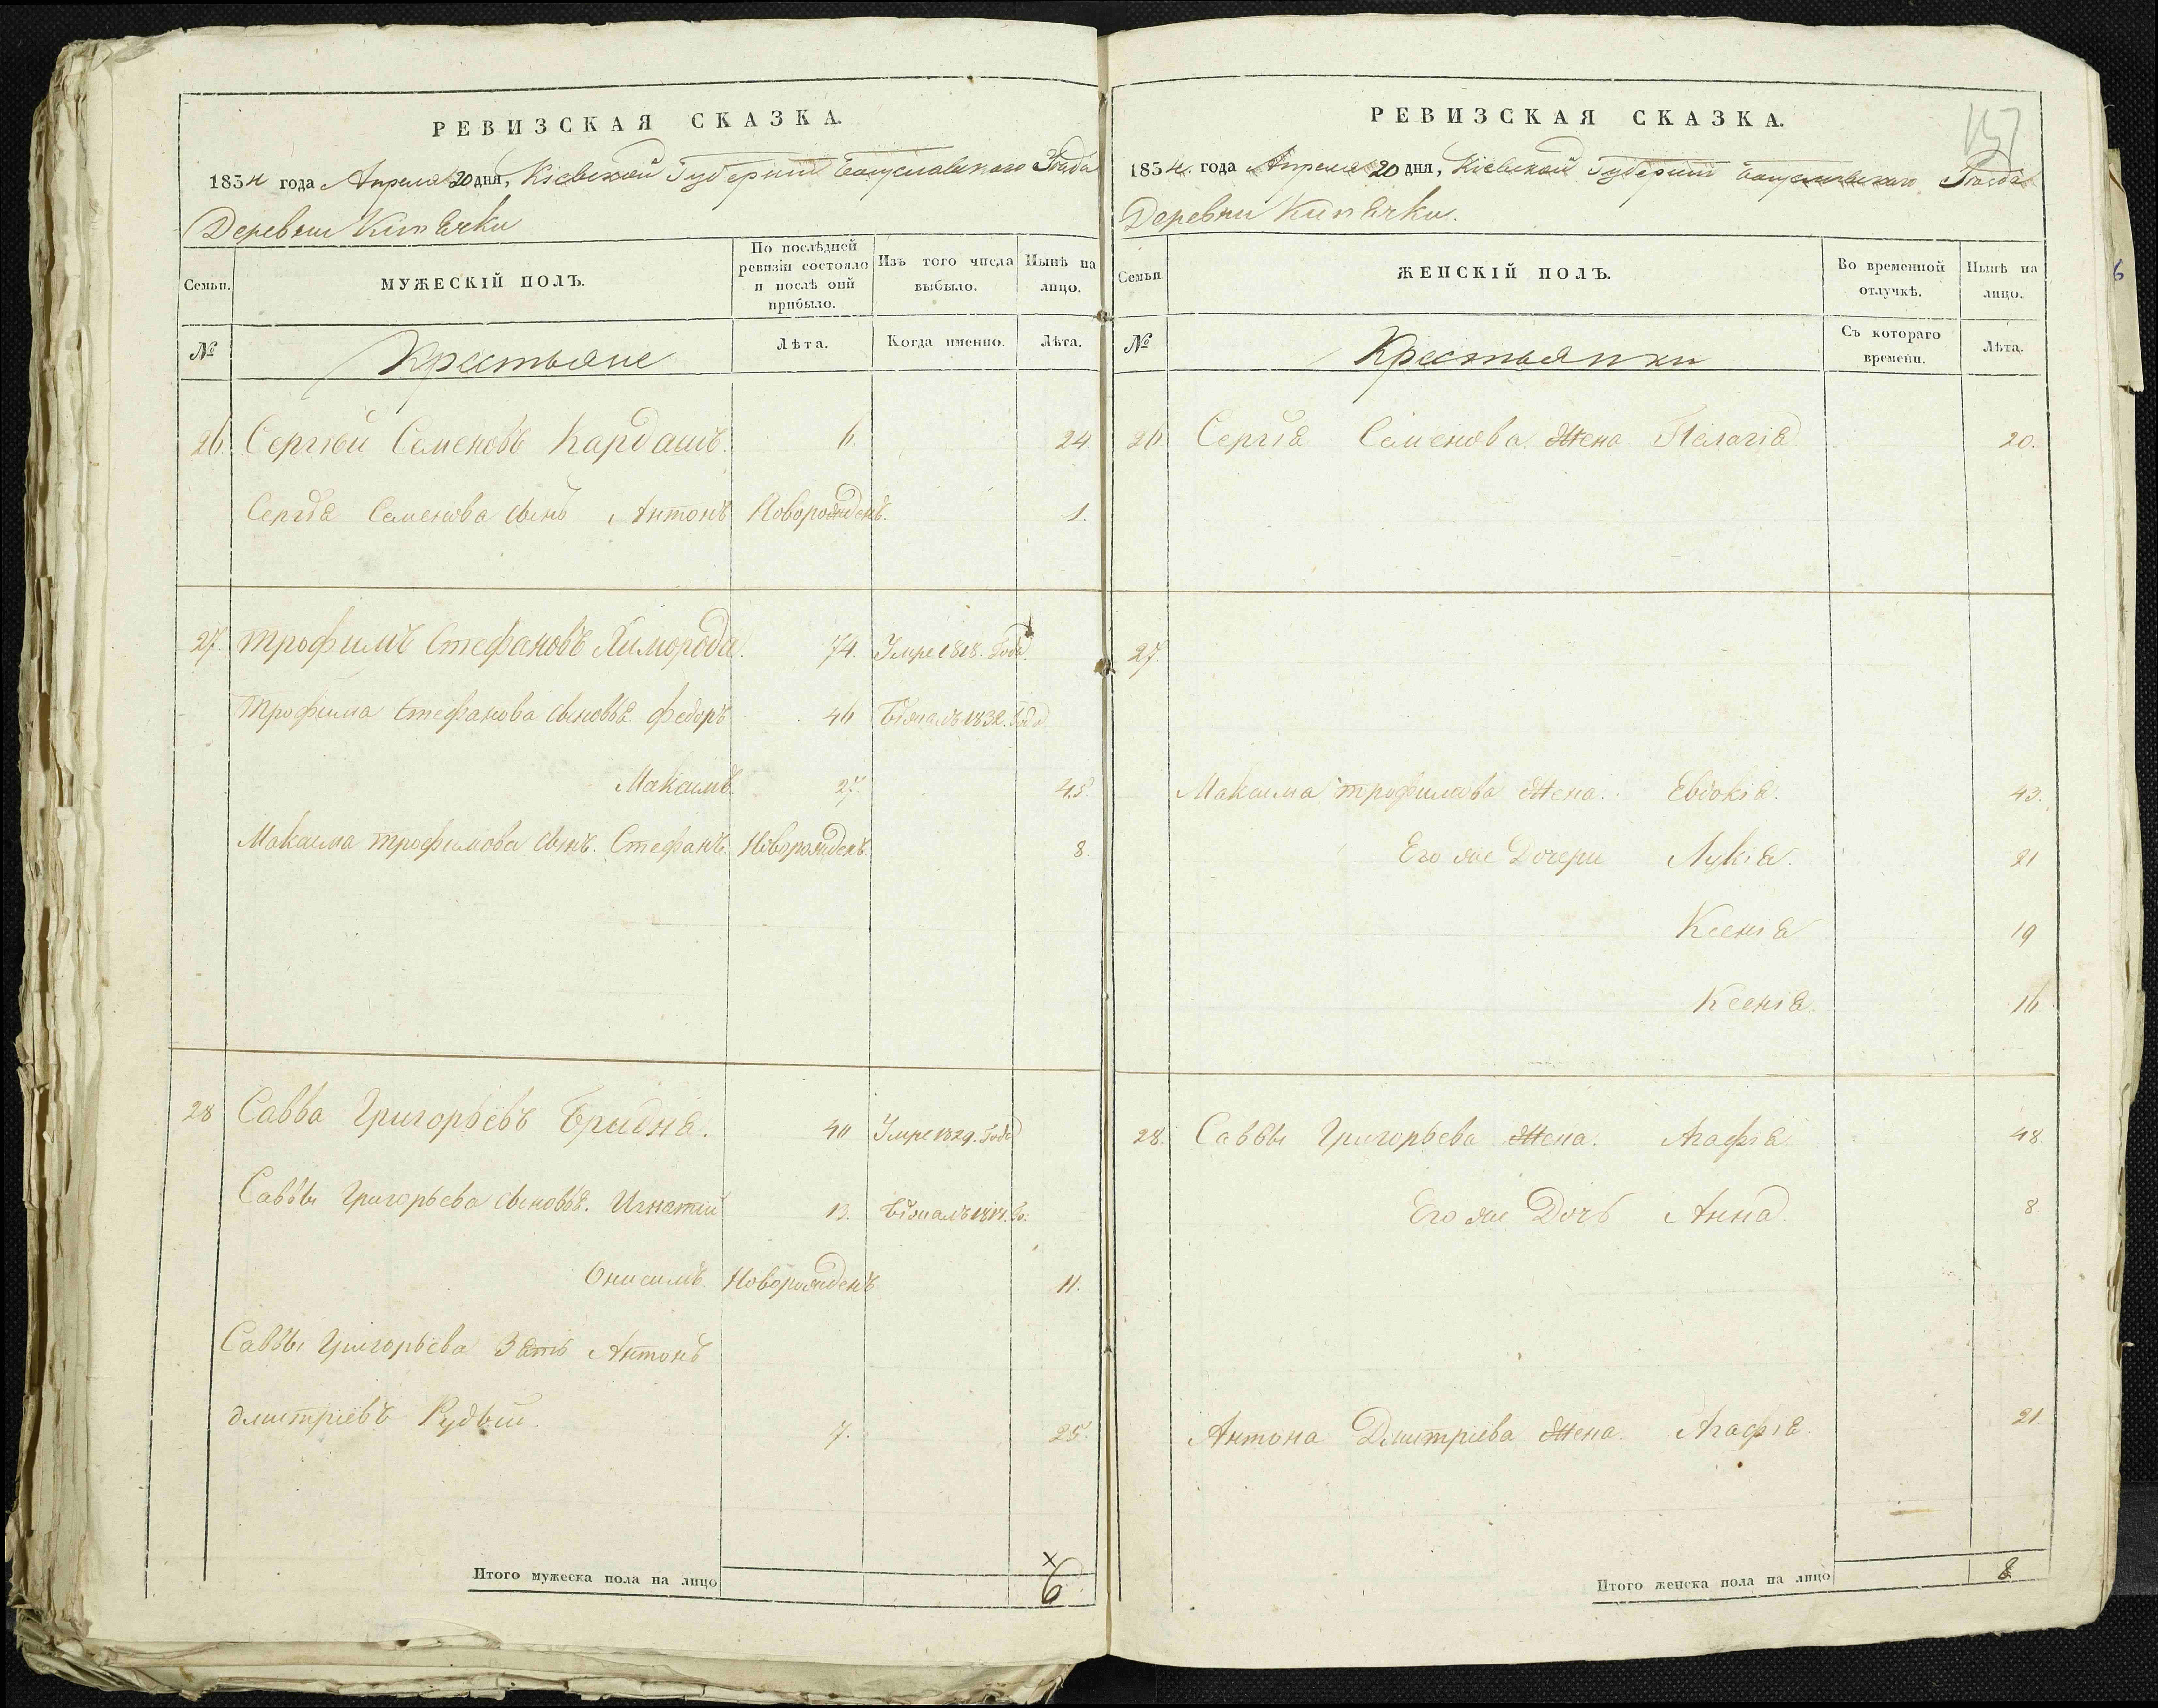 РЕВИЗСКАЯ СКАЗКА.
1834 года Апреля 20 дня, Кіевской Губерніи Богуславскаго
Деревни Кипѣчки
Семьи. МУЖЕСКІЙ ПОЛЪ. По послѣдней ревизіи состояло и послѣ оній прибыло. Изъ того числа выбыло. Нынѣ на лицо.
№ Крестьяне Лѣта. Когда именно. Лѣта.
26 Сергѣй Семеновъ Кардашъ. 6 24
Сергія Семенова сынъ Антонъ Новорожденъ. 1.
27. трофимъ Стефановъ 74. Умре 1818. Года
Трофима Стефанова сыновья. федоръ 46 Бѣжалъ 1832. Года
Максимъ. 27. 45.
Максима трофимова сынъ. Стефанъ Новорожденъ 8.
28 Савва Григорьевъ 40 Умре 1829. Года
Саввы Григорьева сыновья. Игнатій 13. Бѣжалъ Го:
Онисимъ Новорожденъ 11.
Саввы Григорьева Зять Антонъ
дмитріевъ Рудый. 7. 25.
Итого мужеска пола на лицо 6
РЕВИЗСКАЯ СКАЗКА.
1834. года Апреля 20 дня, Кіевской Губерніи Богуславскаго
Деревни Кипѣчки.
Семьи ЖЕНСКІЙ ПОЛЪ. Во временной отлучкѣ. Нынѣ на лицо.
№ Крестьянки Съ котораго времени. Лѣта.
26 Сергія Семенова Жена Пелагія 20.
27.
Максима трофимова Жена. Евдокія. 43.
Его же Дочери Лукія. 21
Ксенія 19
Ксенія. 16
28. Саввы Григорьева Жена. Агафія 48
Его же Дочь Анна. 8
Антона Дмитріева Жена. Агафія. 21
Итого женска пола на лицо 8